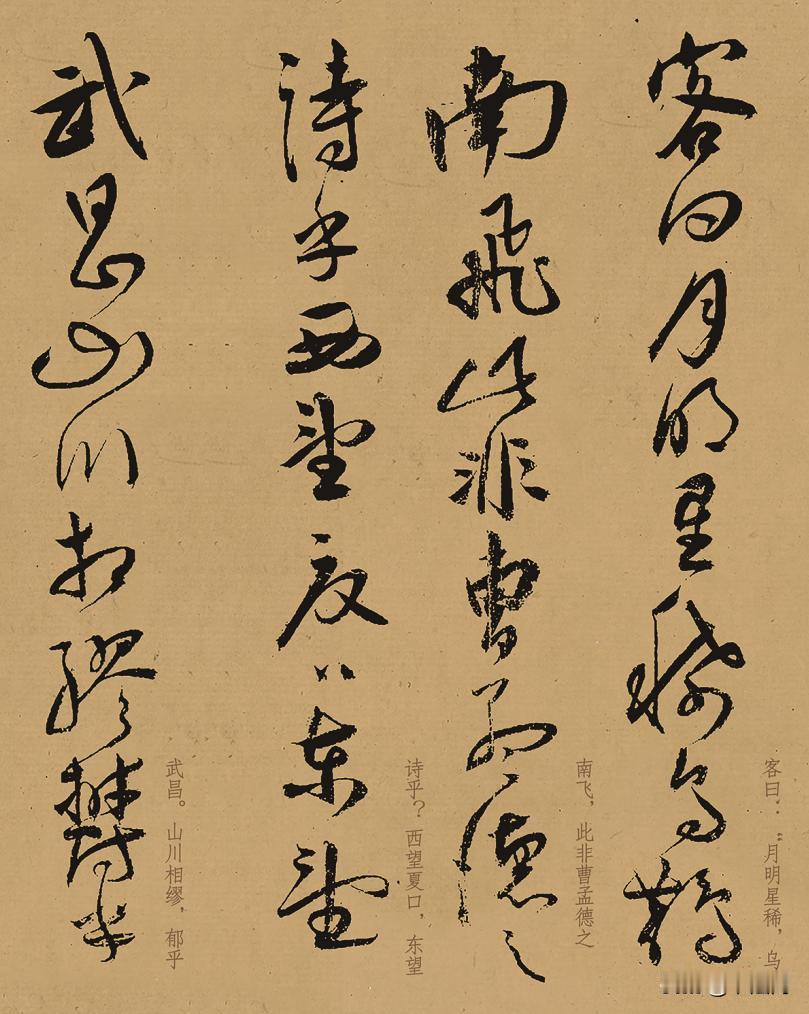 客曰：“月明星稀，乌
客曰月明星稀烏鵲
南飞，此非曹孟德之
南飛此非曹孟德之
诗乎？西望夏口，东望
詩乎西望夏口東望
武昌。山川相缪，郁乎
武昌山川相繆鬱乎